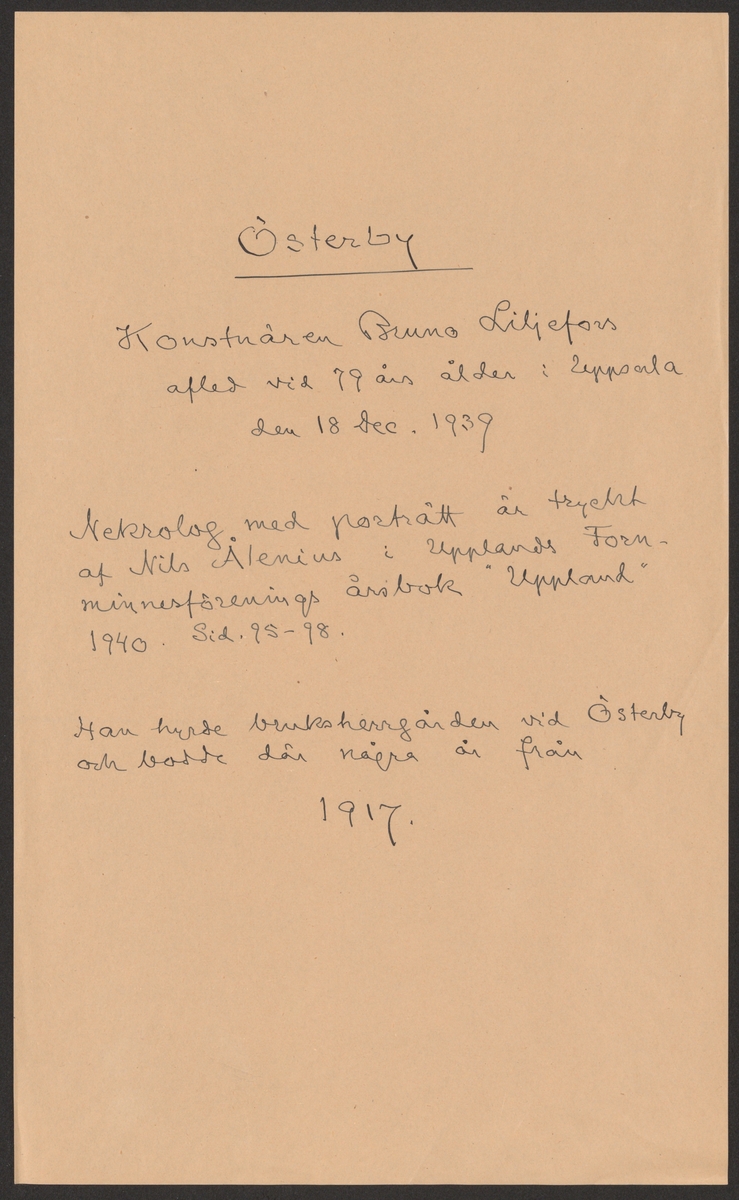 Österby
Konstnären Bruno Liljefors
afled vid 79 års ålder i Uppsala
den 18 Dec. 1939
Nekrolog med porträtt är tryckt
af Nils Ålenius i Upplands Forn-
minnesförenings årsbok "Uppland"
1940. Sid. 95-98.
Han hyrde bruksherrgården vid Österby
och bodde där några år från
1917.